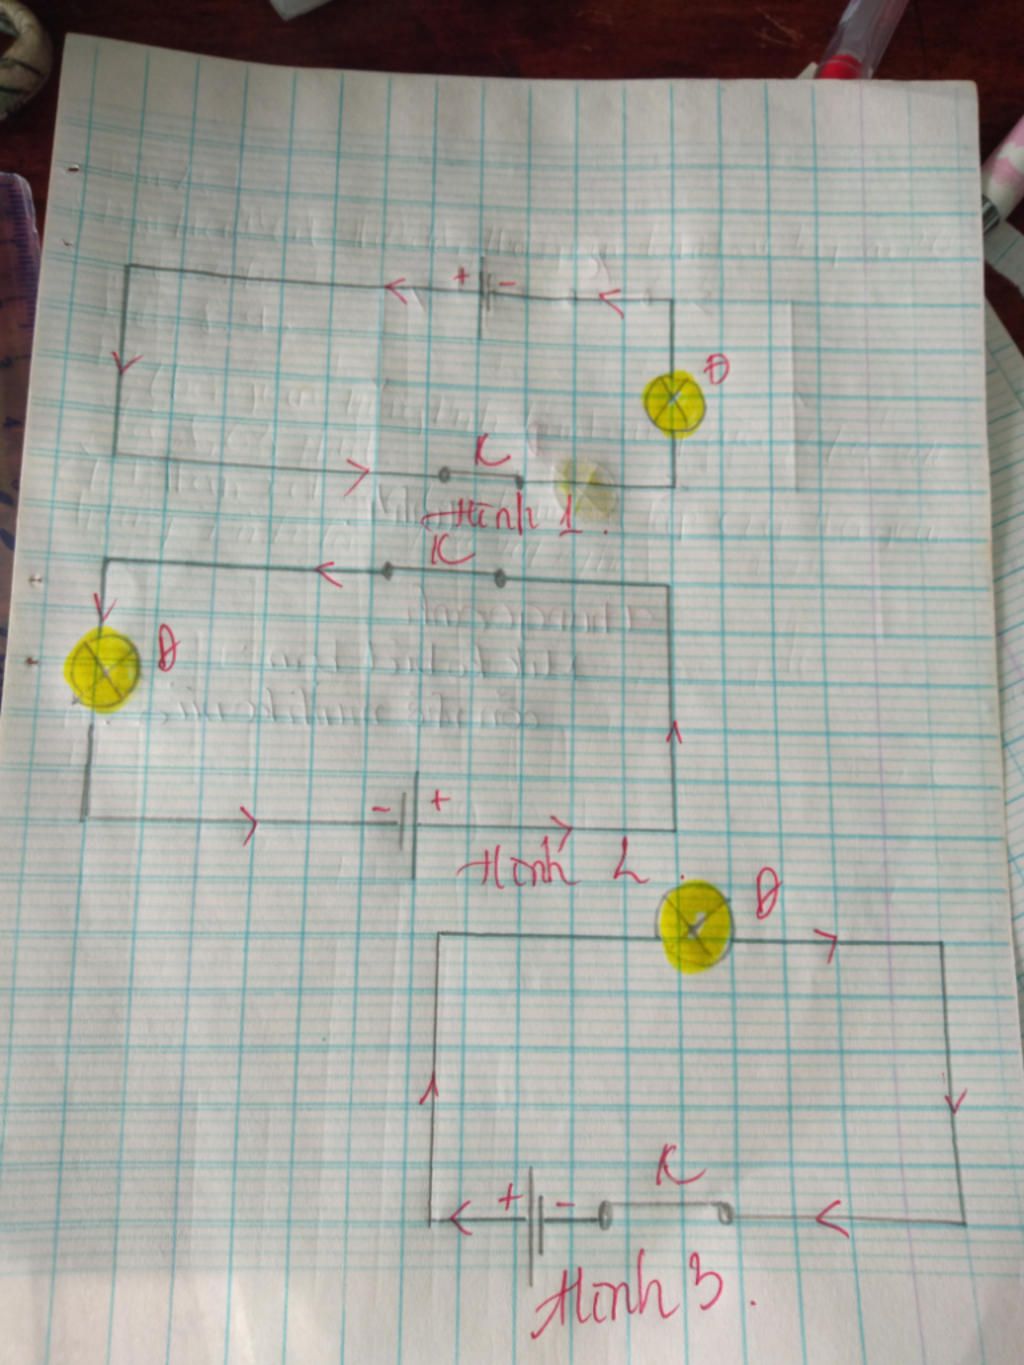 + -
Đ
K
Hình 1.
K
Đ
- +
Hình 2.
Đ
K
+ -
Hình 3.